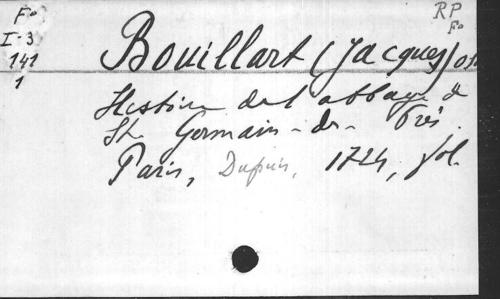 Fo
I-3
141
1
RP
Fo
Bouillart (Jacques)
Histoire de l'abbaye de
St Germain-des-Prés
Paris, Dupuis, 1724, fol.